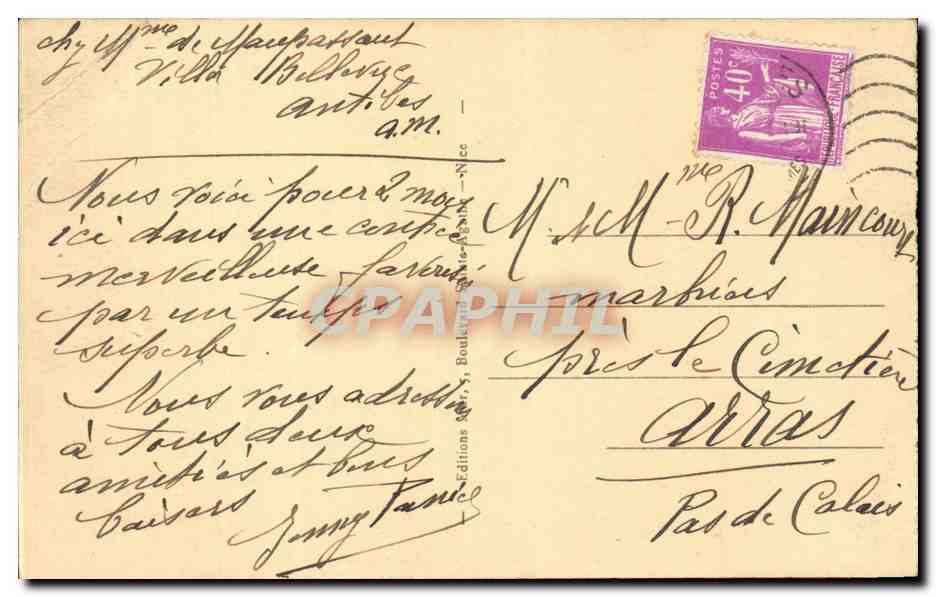 chz Mme de Maupassant
Villa Bellevue
Antibes
a.m.
Nous voici pour 2 mois
ici dans une contrée
merveilleuse, favorisés
par un temps
superbe.
Nous vous adressons
à tous deux
amitiés et bons
baisers
Jenny
M. & Mme R. Maincourt
marbriers
près le Cimetière
Arras
Pas de Calais
POSTES
40c
FRANÇAISE
Editions
Boulevard Sainte-Agathe - Nice
CPAPHIL